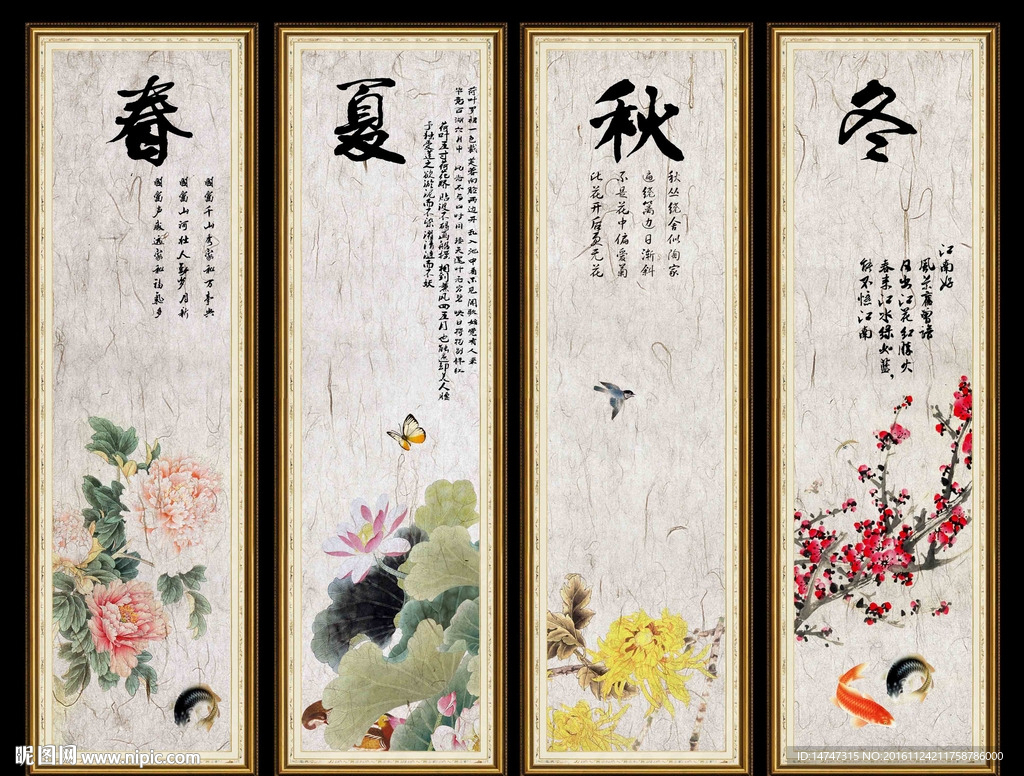 春
國富千山秀家和万事兴
國富山河壮人勤岁月新
國富声威远家和福
夏
荷叶罗裙一色裁 芙蓉向脸两边开 乱入池中看不见 闻歌始觉有人来
毕竟西湖六月中 风光不与四时同 接天莲叶无穷碧 映日荷花别样红
荷叶五寸荷花娇 贴波不碍画船摇 相到薰风四五月 也能遮却美人腰
予独爱莲之出淤泥而不染濯清涟而不妖
秋
秋丛绕舍似陶家
遍绕篱边日渐斜
不是花中偏爱菊
此花开后更无花
冬
江南好
風景舊曾諳
日出江花红勝火
春来江水绿如蓝，
能不憶江南
昵图网 www.nipic.com
ID:14747315 NO:20161124211758786000